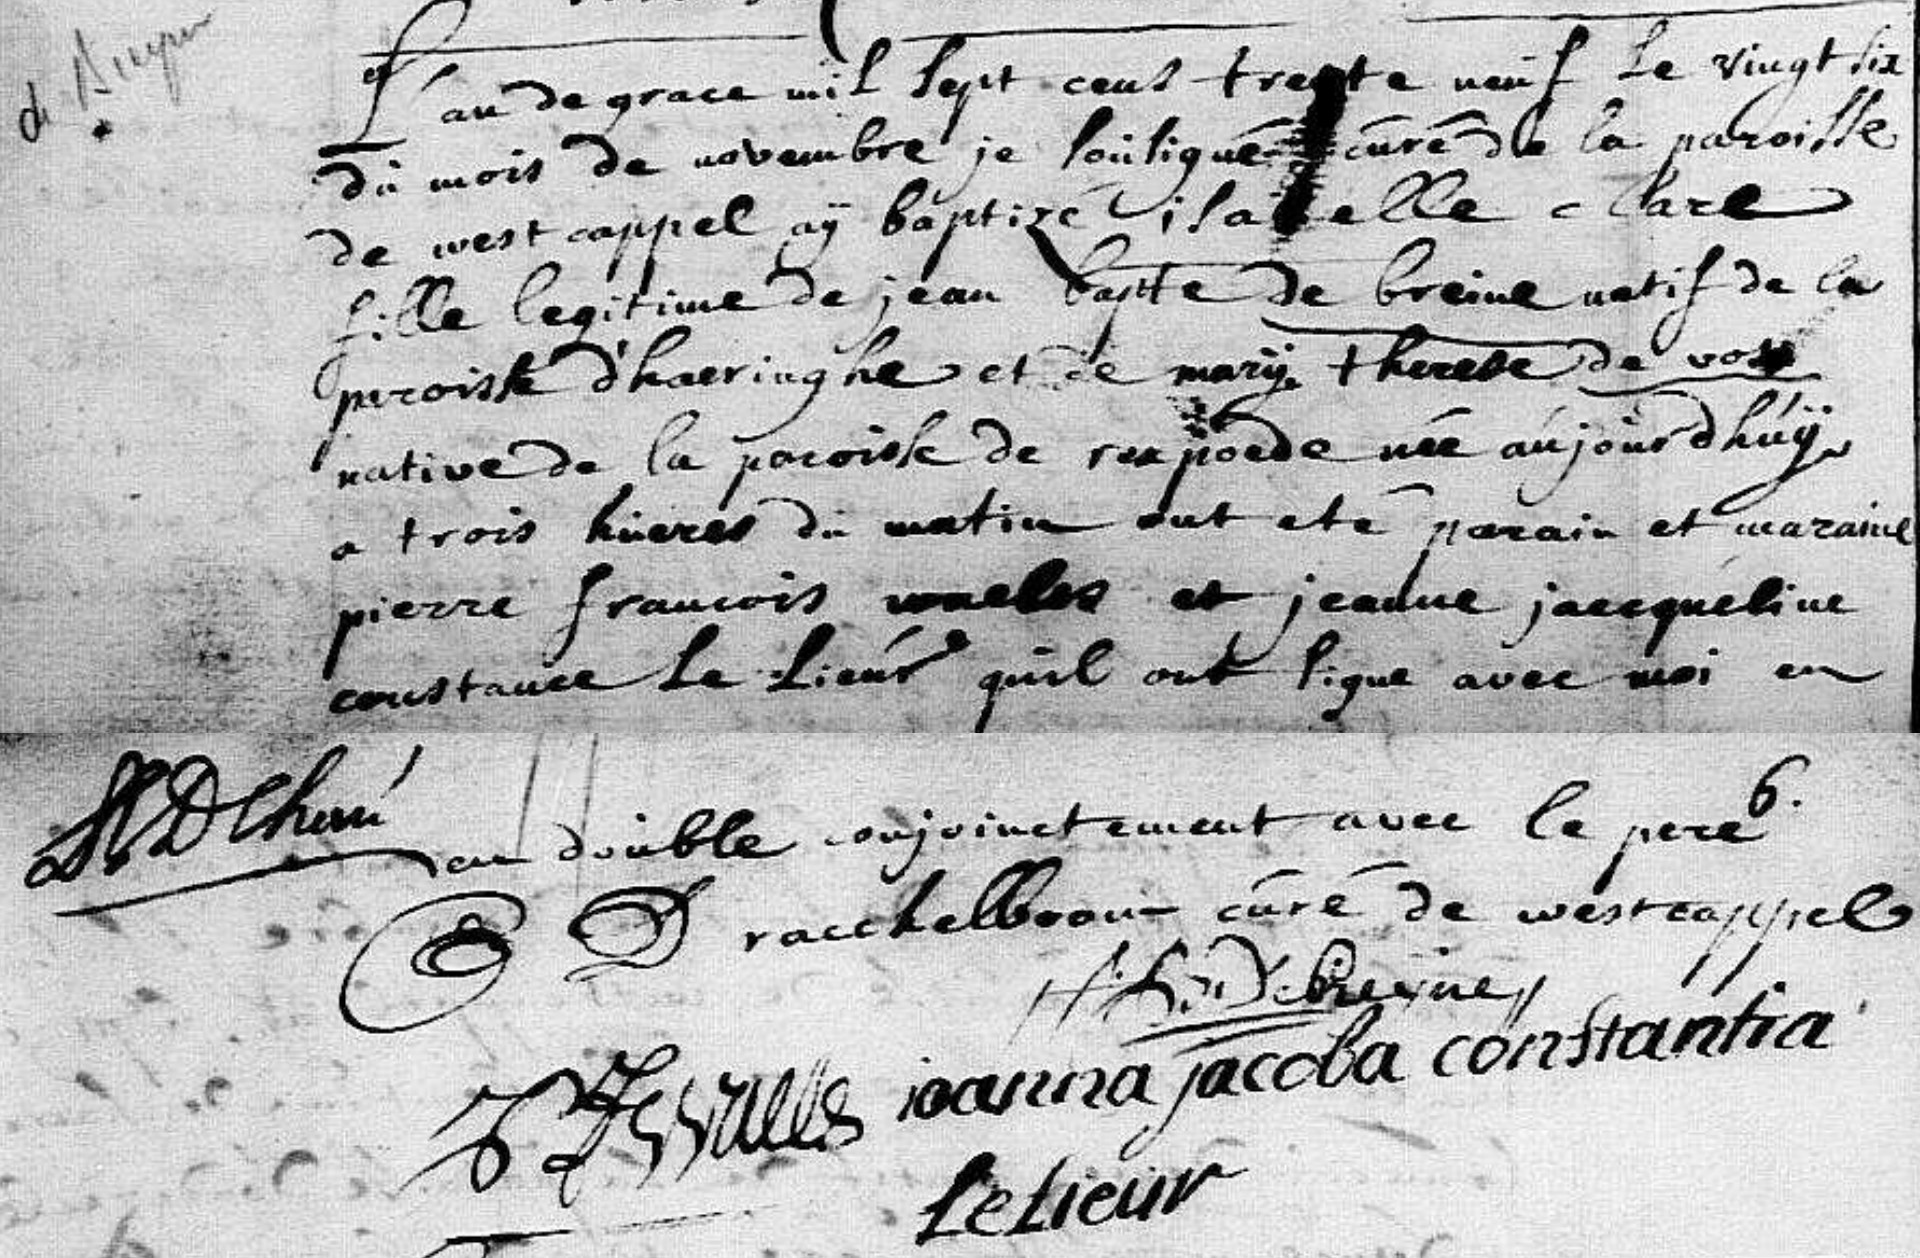 L'an de grace mil sept cens trente neuf le vingt six
du mois de novembre je sousigné curé de la paroisse
de west cappel aÿ baptizé isabelle clare
fille legitime de jean baptte de breine natif de la
paroisse d'haeringhe et de marÿ therese de vos
native de la paroisse de rexpoede née aujourdhuÿ
a trois hueres du matin ont eté parain et maraine
pierre francois et jeanne jacqueline
constance Le Lieur quil ont signe avec moi en
6.
en double conjoinctement avec le pere
D curé de westcappel
Debreyne
ioanna jacoba constantia
LeLieur